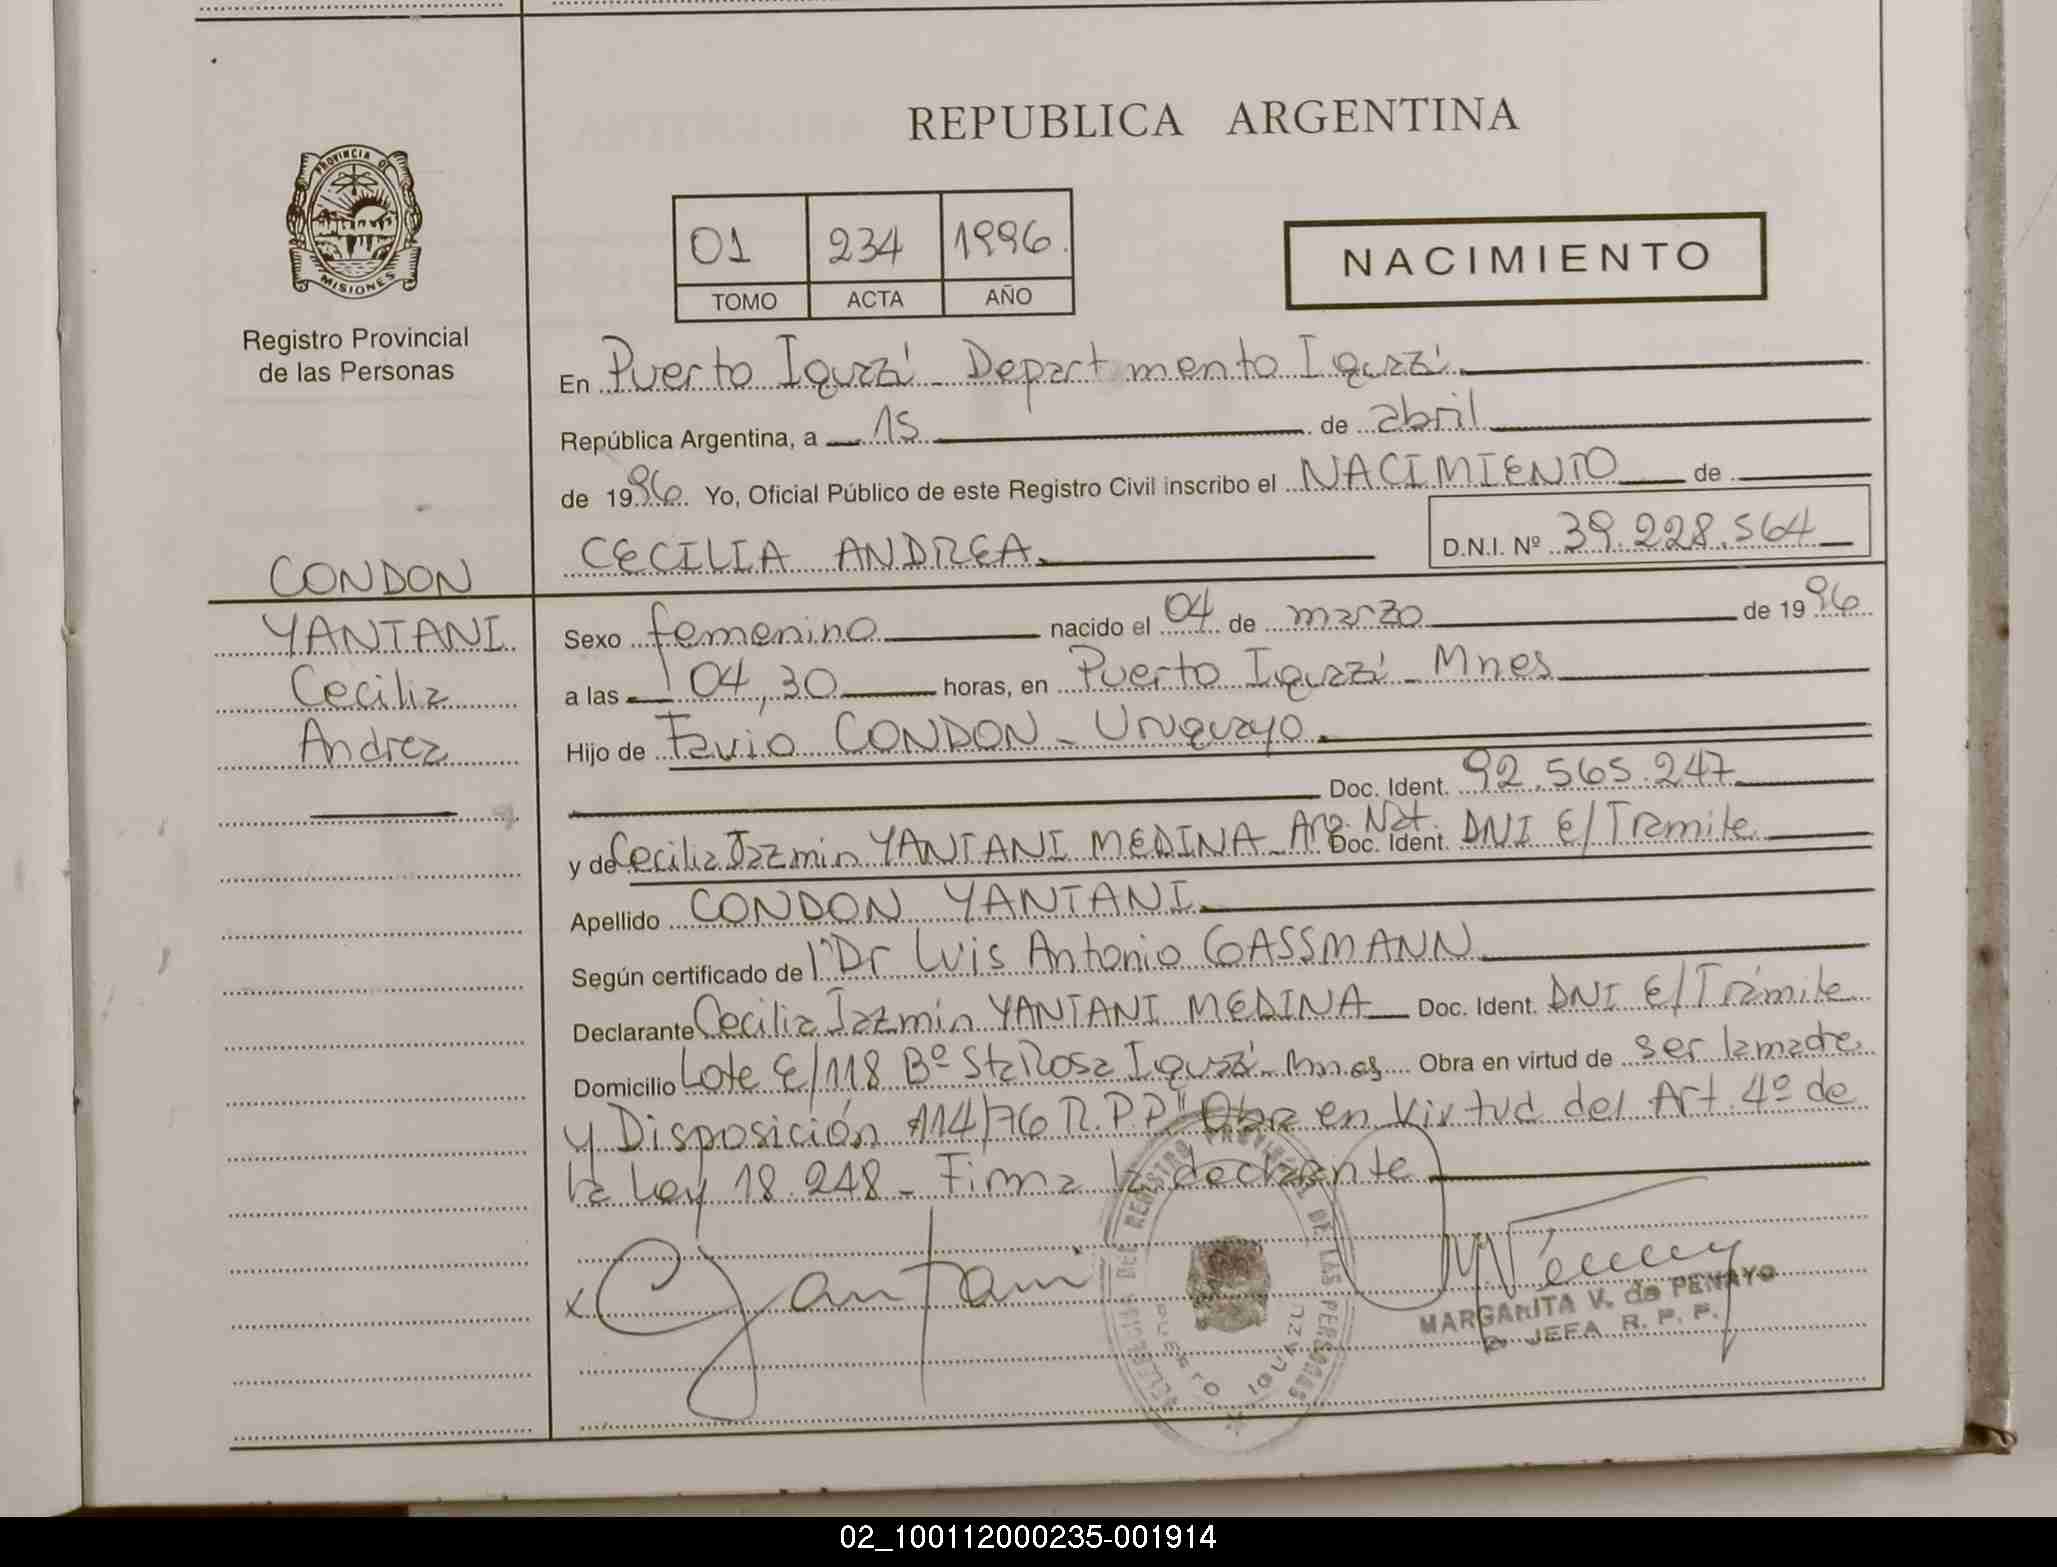 REPUBLICA ARGENTINA
PROVINCIA DE
MISIONES
Registro Provincial
de las Personas
01 234 1996.
TOMO ACTA AÑO
NACIMIENTO
En Puerto Iguazú - Departamento Iguazú
República Argentina, a 15 de abril
de 1996. Yo, Oficial Público de este Registro Civil inscribo el NACIMIENTO de
CECILIA ANDREA.
D.N.I. Nº 39.228.564
CONDON
YANTANI
Cecilia
Andrea
Sexo femenino nacido el 04 de marzo de 1996
a las 04,30 horas, en Puerto Iguazú - Mnes
Hijo de Favio CONDON - Uruguayo.
Doc. Ident. 92.565.247
y de Cecilia Jazmin YANTANI MEDINA - Arg. Nat. Doc. Ident. DNI E/Tramite
Apellido CONDON YANTANI.
Según certificado de l" Dr Luis Antonio GASSMANN
Declarante Cecilia Jazmín YANTANI MEDINA Doc. Ident. DNI E/Trámite
Domicilio Lote E/118 Bº Sta Rosa Iguazú - Mnes Obra en virtud de ser la madre
y Disposición 114/76 R.P.P" Obra en virtud del Art. 4º de
la Ley 18.248 - Firma la declarante
x CYantani
REGISTRO PROVINCIAL DE LAS PERSONAS
PUERTO IGUAZU
MARGARITA V. de PENAYO
JEFA R. P. P.
02_100112000235-001914